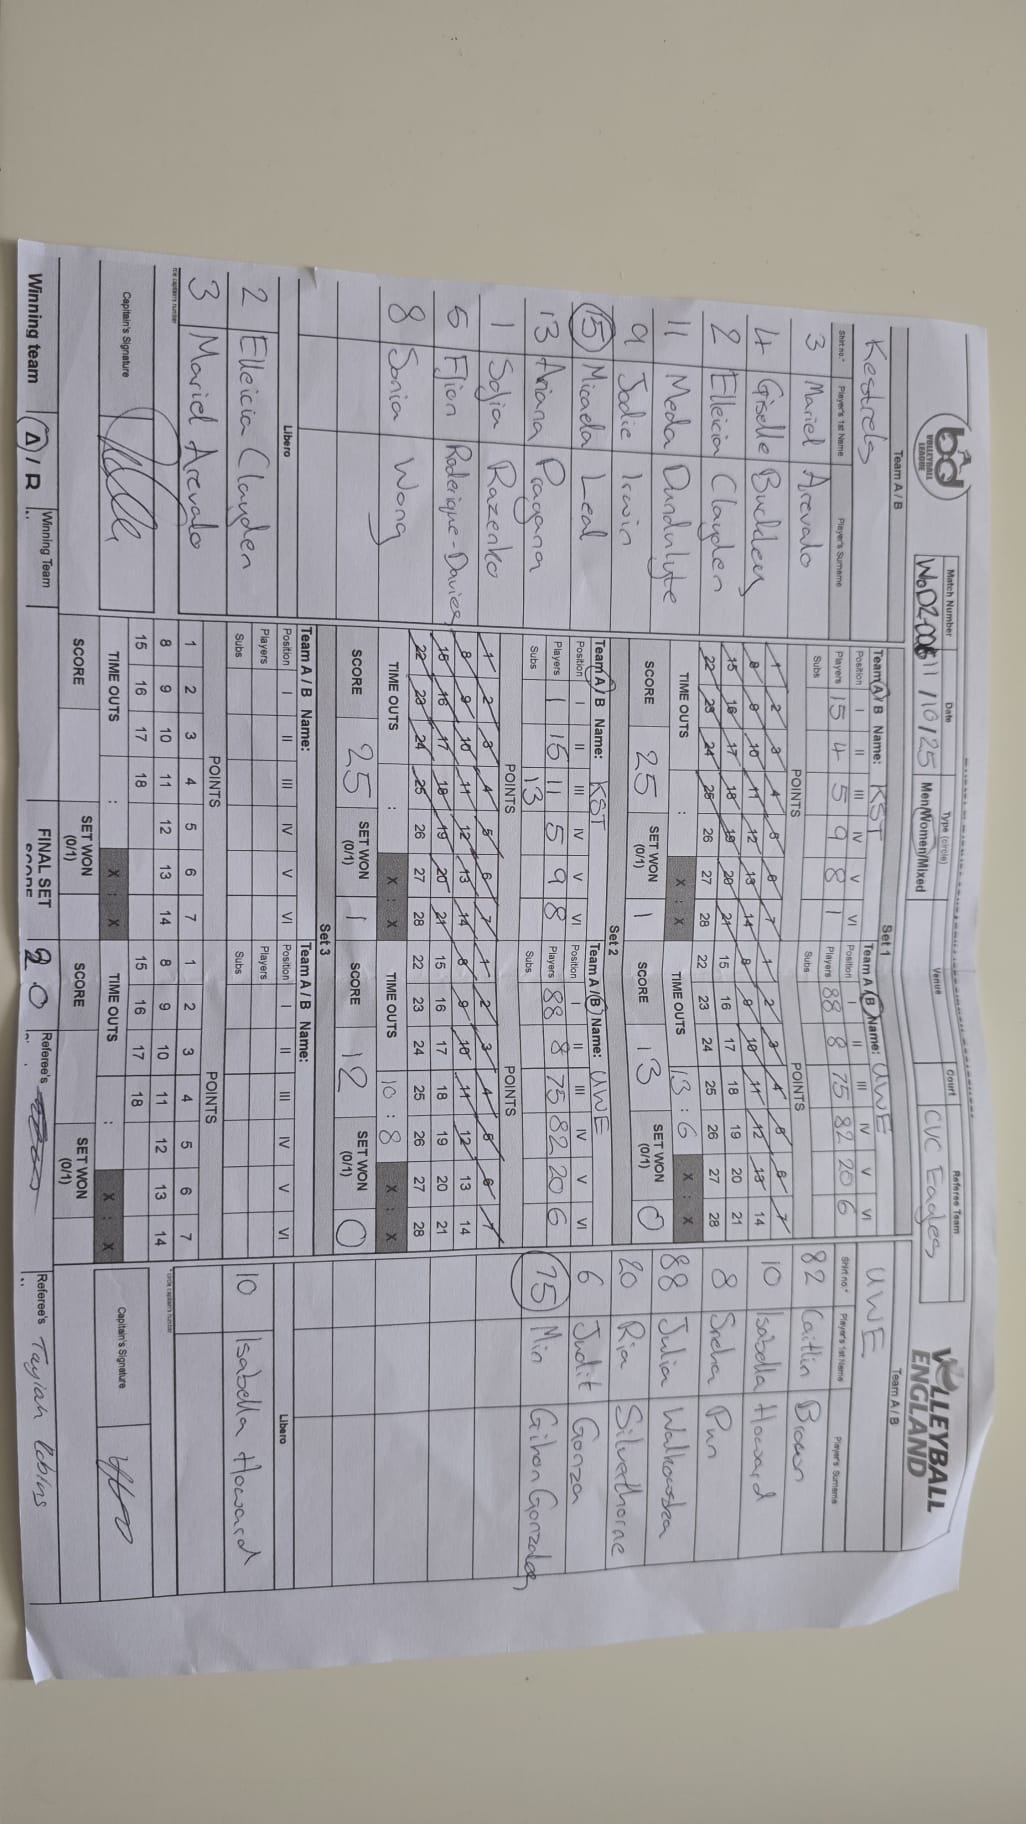 bd VOLLEYBALL LEAGUE
Match Number Date Type (circle) Venue Court Referee Team
11/10/25 Men/Women/Mixed CVC Eagles
VOLLEYBALL ENGLAND
Team A / B
Kestrels
Shirt no.* Player's 1st Name Player's Surname
3 Mariel Arevalo
4 Giselle Buckley
2 Elleicia Clayden
11 Meda
9 Jodie Irwin
15 Micaela Leal
13 Ariana Pragana
1 Razenko
5 Roderique-Davies
8 Sonia Wong
Libero
2 Elleicia Clayden
3 Mariel Arevalo
*circle captain's number
Captain's Signature
Set 1
Team A / B Name: KST
Position I II III IV V VI
Players 15 4 5 9 8 1
Subs
POINTS
1 2 3 4 5 6 7
8 9 10 11 12 13 14
15 16 17 18 19 20 21
22 23 24 25 26 27 28
TIME OUTS : X : X
SCORE 25 SET WON (0/1) 1
Team A / B Name: UWE
Position I II III IV V VI
Players 88 8 75 82 20 6
Subs
POINTS
1 2 3 4 5 6 7
8 9 10 11 12 13 14
15 16 17 18 19 20 21
22 23 24 25 26 27 28
TIME OUTS 13 : 6 X : X
SCORE 13 SET WON (0/1) 0
Set 2
Team A / B Name: KST
Position I II III IV V VI
Players 1 15 11 5 9 8
Subs 13
POINTS
1 2 3 4 5 6 7
8 9 10 11 12 13 14
15 16 17 18 19 20 21
22 23 24 25 26 27 28
TIME OUTS : X : X
SCORE 25 SET WON (0/1) 1
Team A / B Name: UWE
Position I II III IV V VI
Players 88 8 75 82 20 6
Subs
POINTS
1 2 3 4 5 6 7
8 9 10 11 12 13 14
15 16 17 18 19 20 21
22 23 24 25 26 27 28
TIME OUTS 10 : 8 X : X
SCORE 12 SET WON (0/1) 0
Set 3
Team A / B Name:
Position I II III IV V VI
Players
Subs
POINTS
1 2 3 4 5 6 7
8 9 10 11 12 13 14
15 16 17 18
TIME OUTS : X : X
SCORE SET WON (0/1)
Team A / B Name:
Position I II III IV V VI
Players
Subs
POINTS
1 2 3 4 5 6 7
8 9 10 11 12 13 14
15 16 17 18
TIME OUTS : X : X
SCORE SET WON (0/1)
Team A / B
UWE
Shirt no.* Player's 1st Name Player's Surname
82 Caitlin Brown
10 Isabella Howard
8 Sneha Pun
88 Julia
20 Ria Silverthorne
6 Judit Gonza
75 Min Gihon Gonzales
Libero
10 Isabella Howard
*circle captain's number
Captain's Signature
Winning team A / B Winning Team FINAL SET SCORE 2 0 Referee's Referee's Tayiah